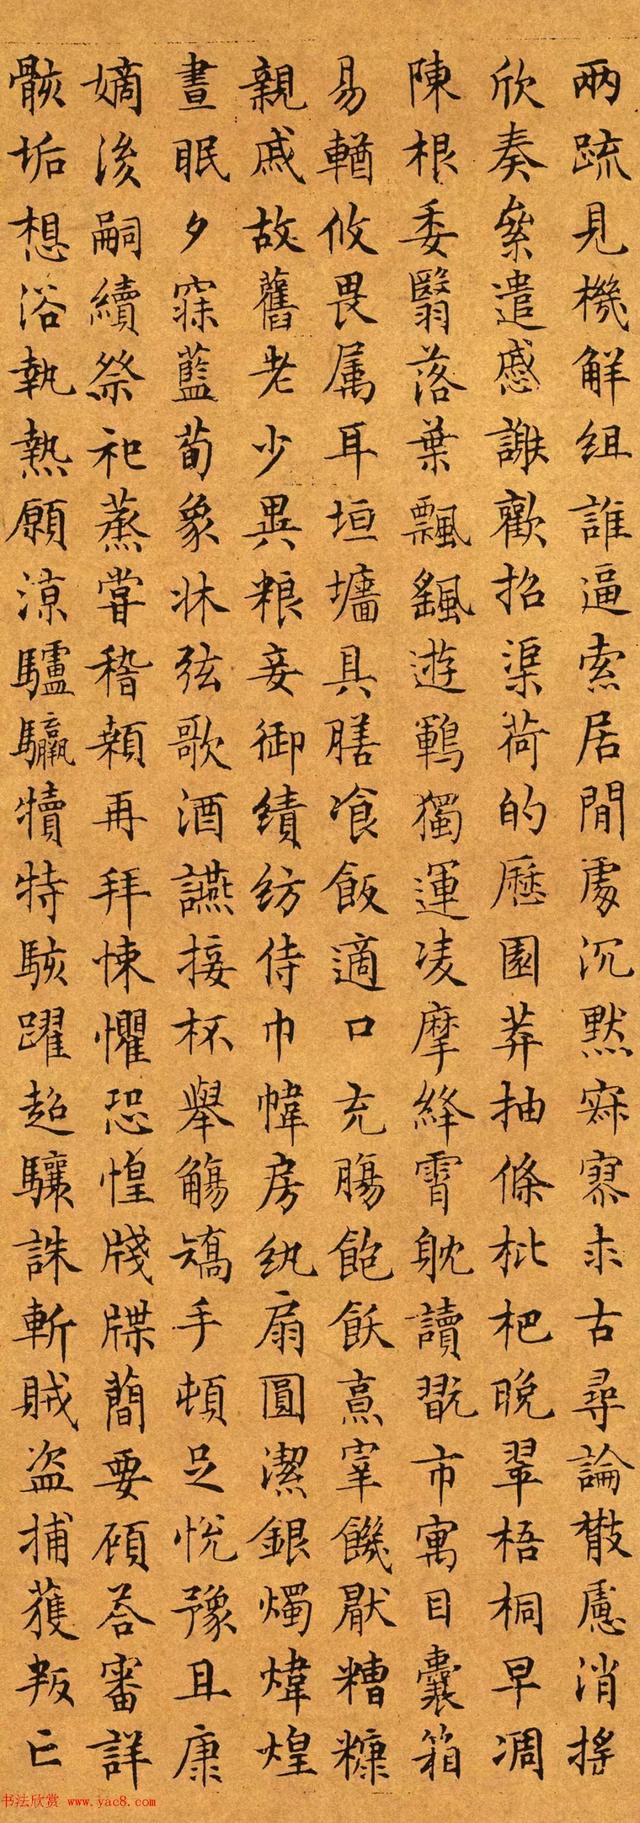 兩疏見機解組誰逼索居閒處沉默寂寥求古尋論散慮逍搖
欣奏累遣慼謝歡招渠荷的歷園莽抽條枇杷晚翠梧桐早凋
陳根委翳落葉飄颻遊鵾獨運凌摩絳霄耽讀翫市寓目囊箱
易輶攸畏属耳垣墻具膳飡飯適口充腸飽飫烹宰饑厭糟糠
親戚故舊老少異粮妾御績紡侍巾帷房紈扇圓潔銀燭煒煌
晝眠夕寐藍荀象床弦歌酒讌接杯舉觴矯手頓足悅豫且康
嫡後嗣續祭祀蒸甞稽顙再拜悚懼恐惶牋牒蕳要顧荅審詳
骸垢想浴執熱願涼驢騾犢特駭躍超驤誅斬賊盗捕獲叛亡
书法欣赏 www.yac8.com